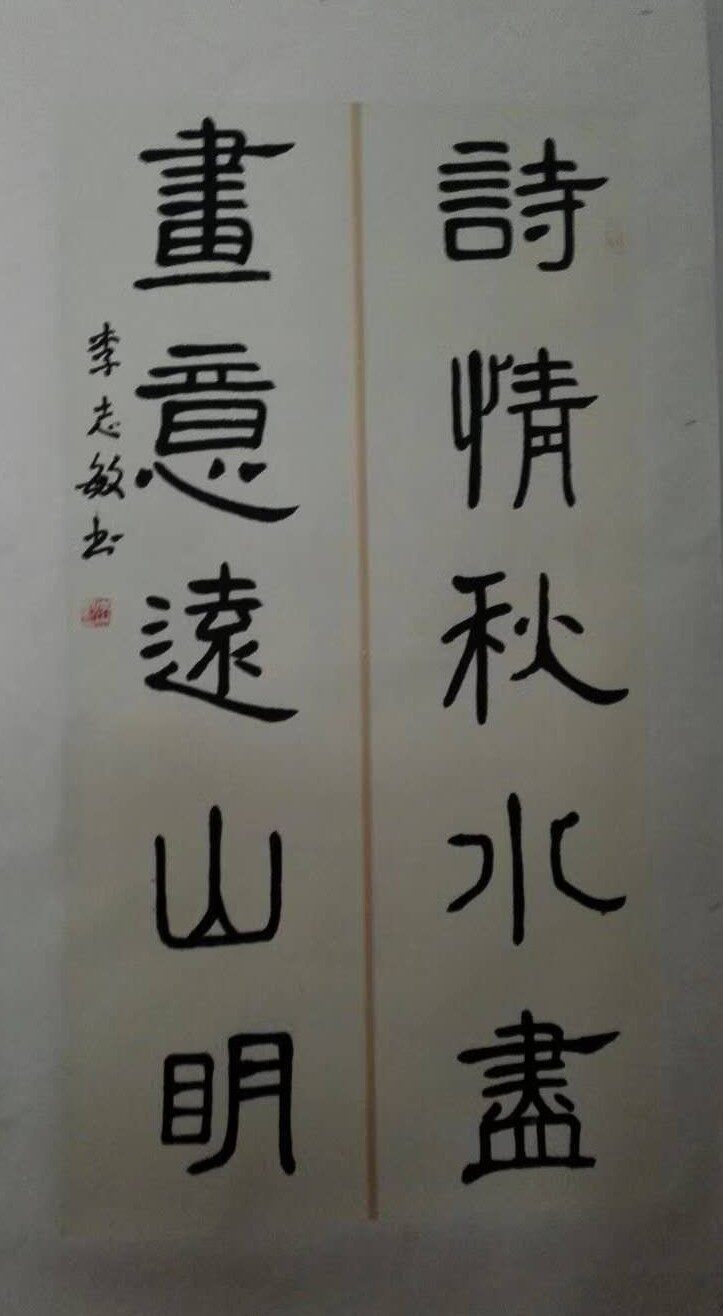 詩情秋水盡
畫意遠山明
李志敏书